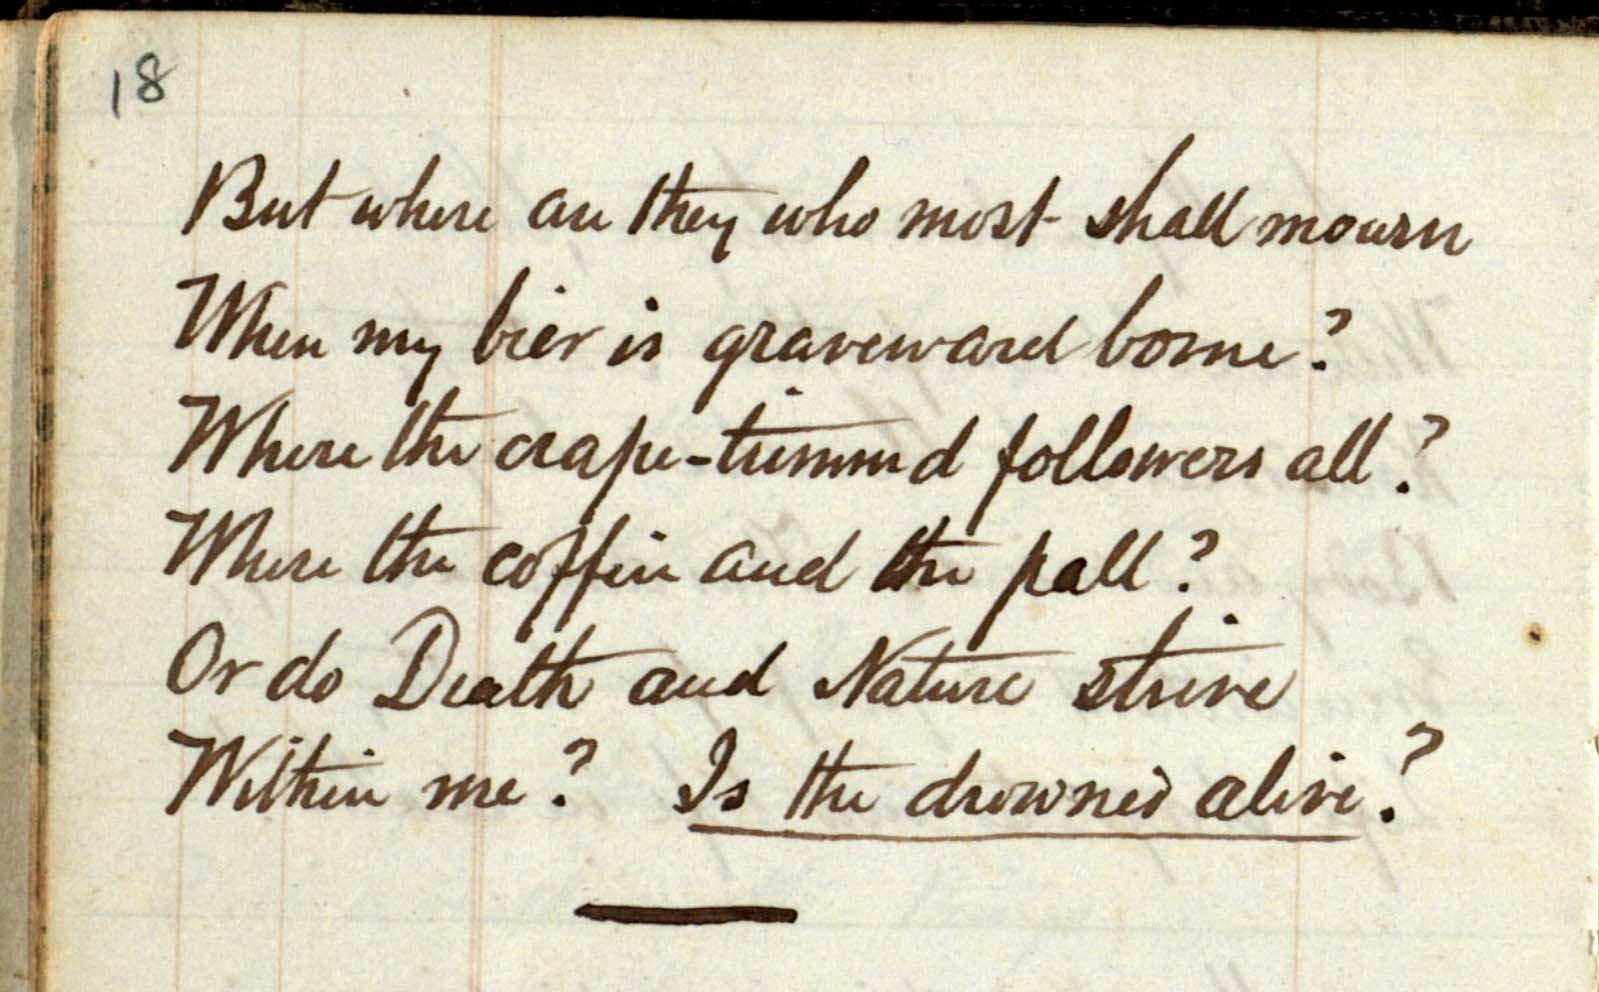 18
But where are they who most shall mourn
When my bier is graveward borne?
Where the crape-trimmed followers all?
Where the coffin and the pall?
Or do Death and Nature strive
Within me? Is the drowned alive?